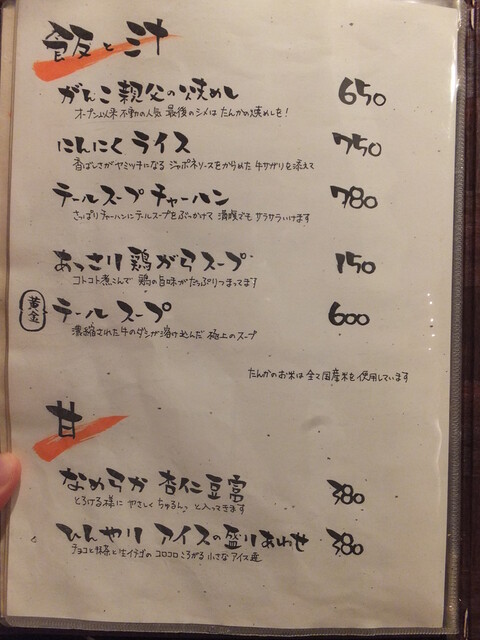 飯と汁
がんこ親父の焼めし 650
オープン以来不動の人気 最後のシメはたんかの焼めしを!
にんにくライス 750
香ばしさがヤミツキになる ジャポネソースをからめた 牛サガリを添えて
テールスープチャーハン 780
さっぱりチャーハンにテールスープをぶっかけて 満腹でもサラサラいけます
あっさり鶏がらスープ 150
コトコト煮こんで 鶏の旨味がたっぷりつまってます
黄金 テールスープ 600
濃縮された牛のダシが溶け込んだ 極上のスープ
たんかのお米は全て国産米を使用しています
甘
なめらか 杏仁豆富 380
とろける様に やさしく ちゅるん♪ と入ってきます
ひんやり アイスの盛りあわせ 380
チョコと抹茶と生イチゴの コロコロころがる 小さなアイス達